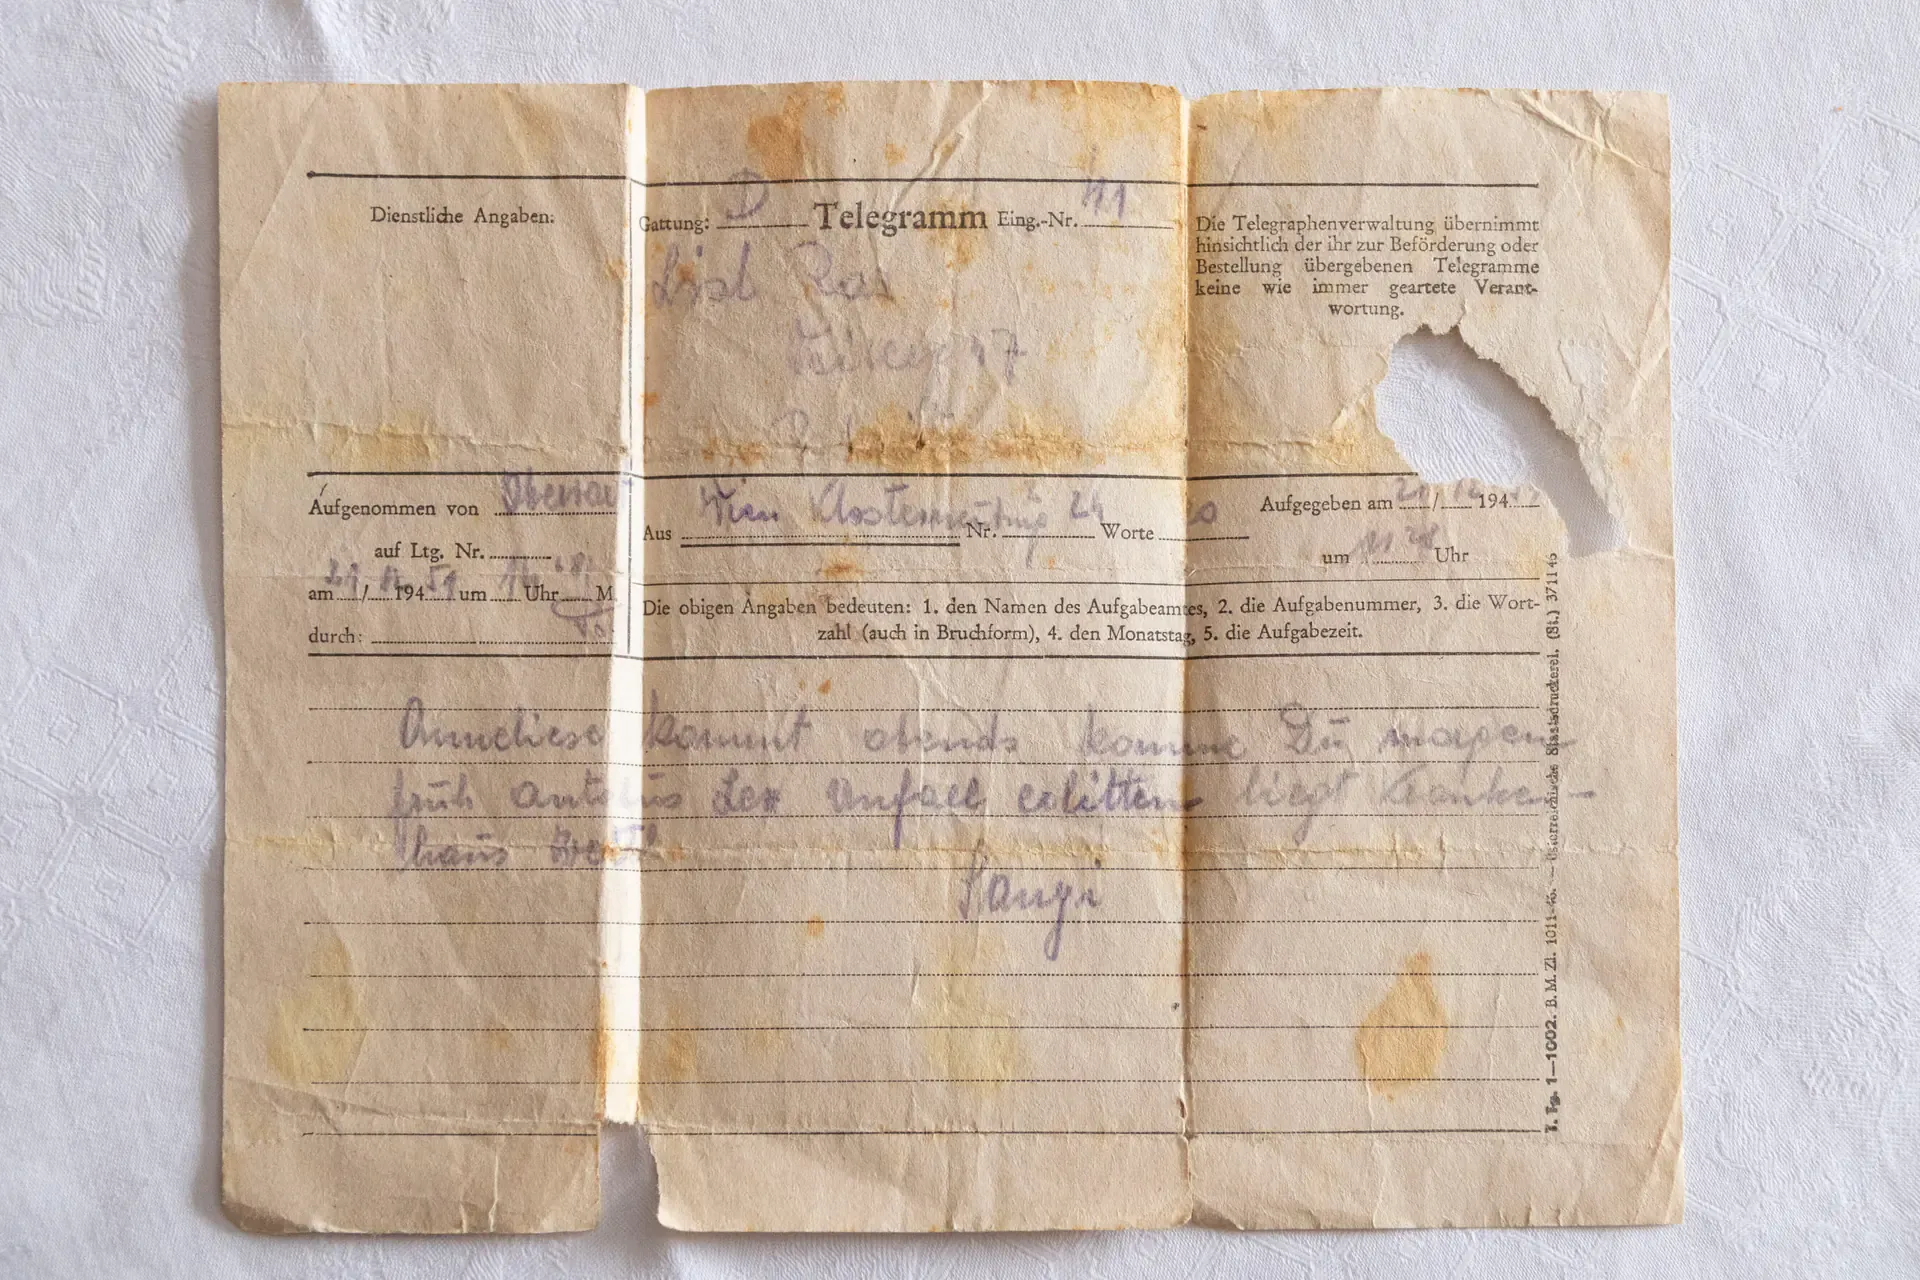 Dienstliche Angaben:
Gattung: D Telegramm Eing.-Nr. 11
Die Telegraphenverwaltung übernimmt
hinsichtlich der ihr zur Beförderung oder
Bestellung übergebenen Telegramme
keine wie immer geartete Verant-
wortung.
17
Aufgenommen von
auf Ltg. Nr.
am 21/ 194 51 um Uhr M
durch:
Aus Wien Klosterneubg Nr. 24 Worte
Aufgegeben am / 194
um Uhr
Die obigen Angaben bedeuten: 1. den Namen des Aufgabeamtes, 2. die Aufgabenummer, 3. die Wort-
zahl (auch in Bruchform), 4. den Monatstag, 5. die Aufgabezeit.
Anneliese kommt abends komme Du morgen
früh autobus Unfall erlitten liegt Kranken-
haus
T. Fg. 1—1002. B. M. Zl. 1011-46. — Österreichische Staatsdruckerei. (St.) 371146